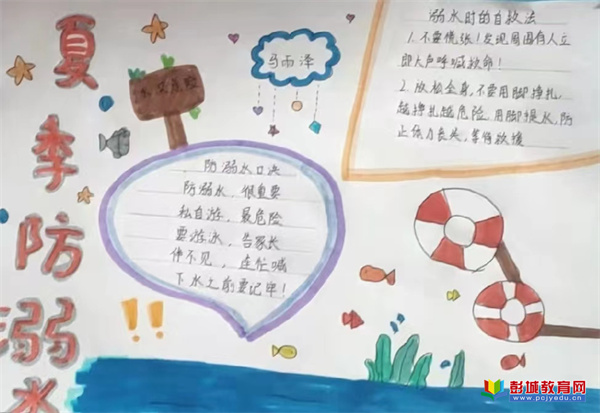 夏季防溺水
水深危险
马雨泽
防溺水口决
防溺水，很重要
私自游，最危险
要游泳，告家长
伴不见，连忙喊
下水之前要记牢！
溺水时的自救法
1.不要慌张！发现周围有人立
即大声呼喊救命！
2.放松全身，不要用脚撑扎
越撑扎越危险，用脚提水，防
止体力丧失，等待救援
彭城教育网
www.pcjyedu.cn